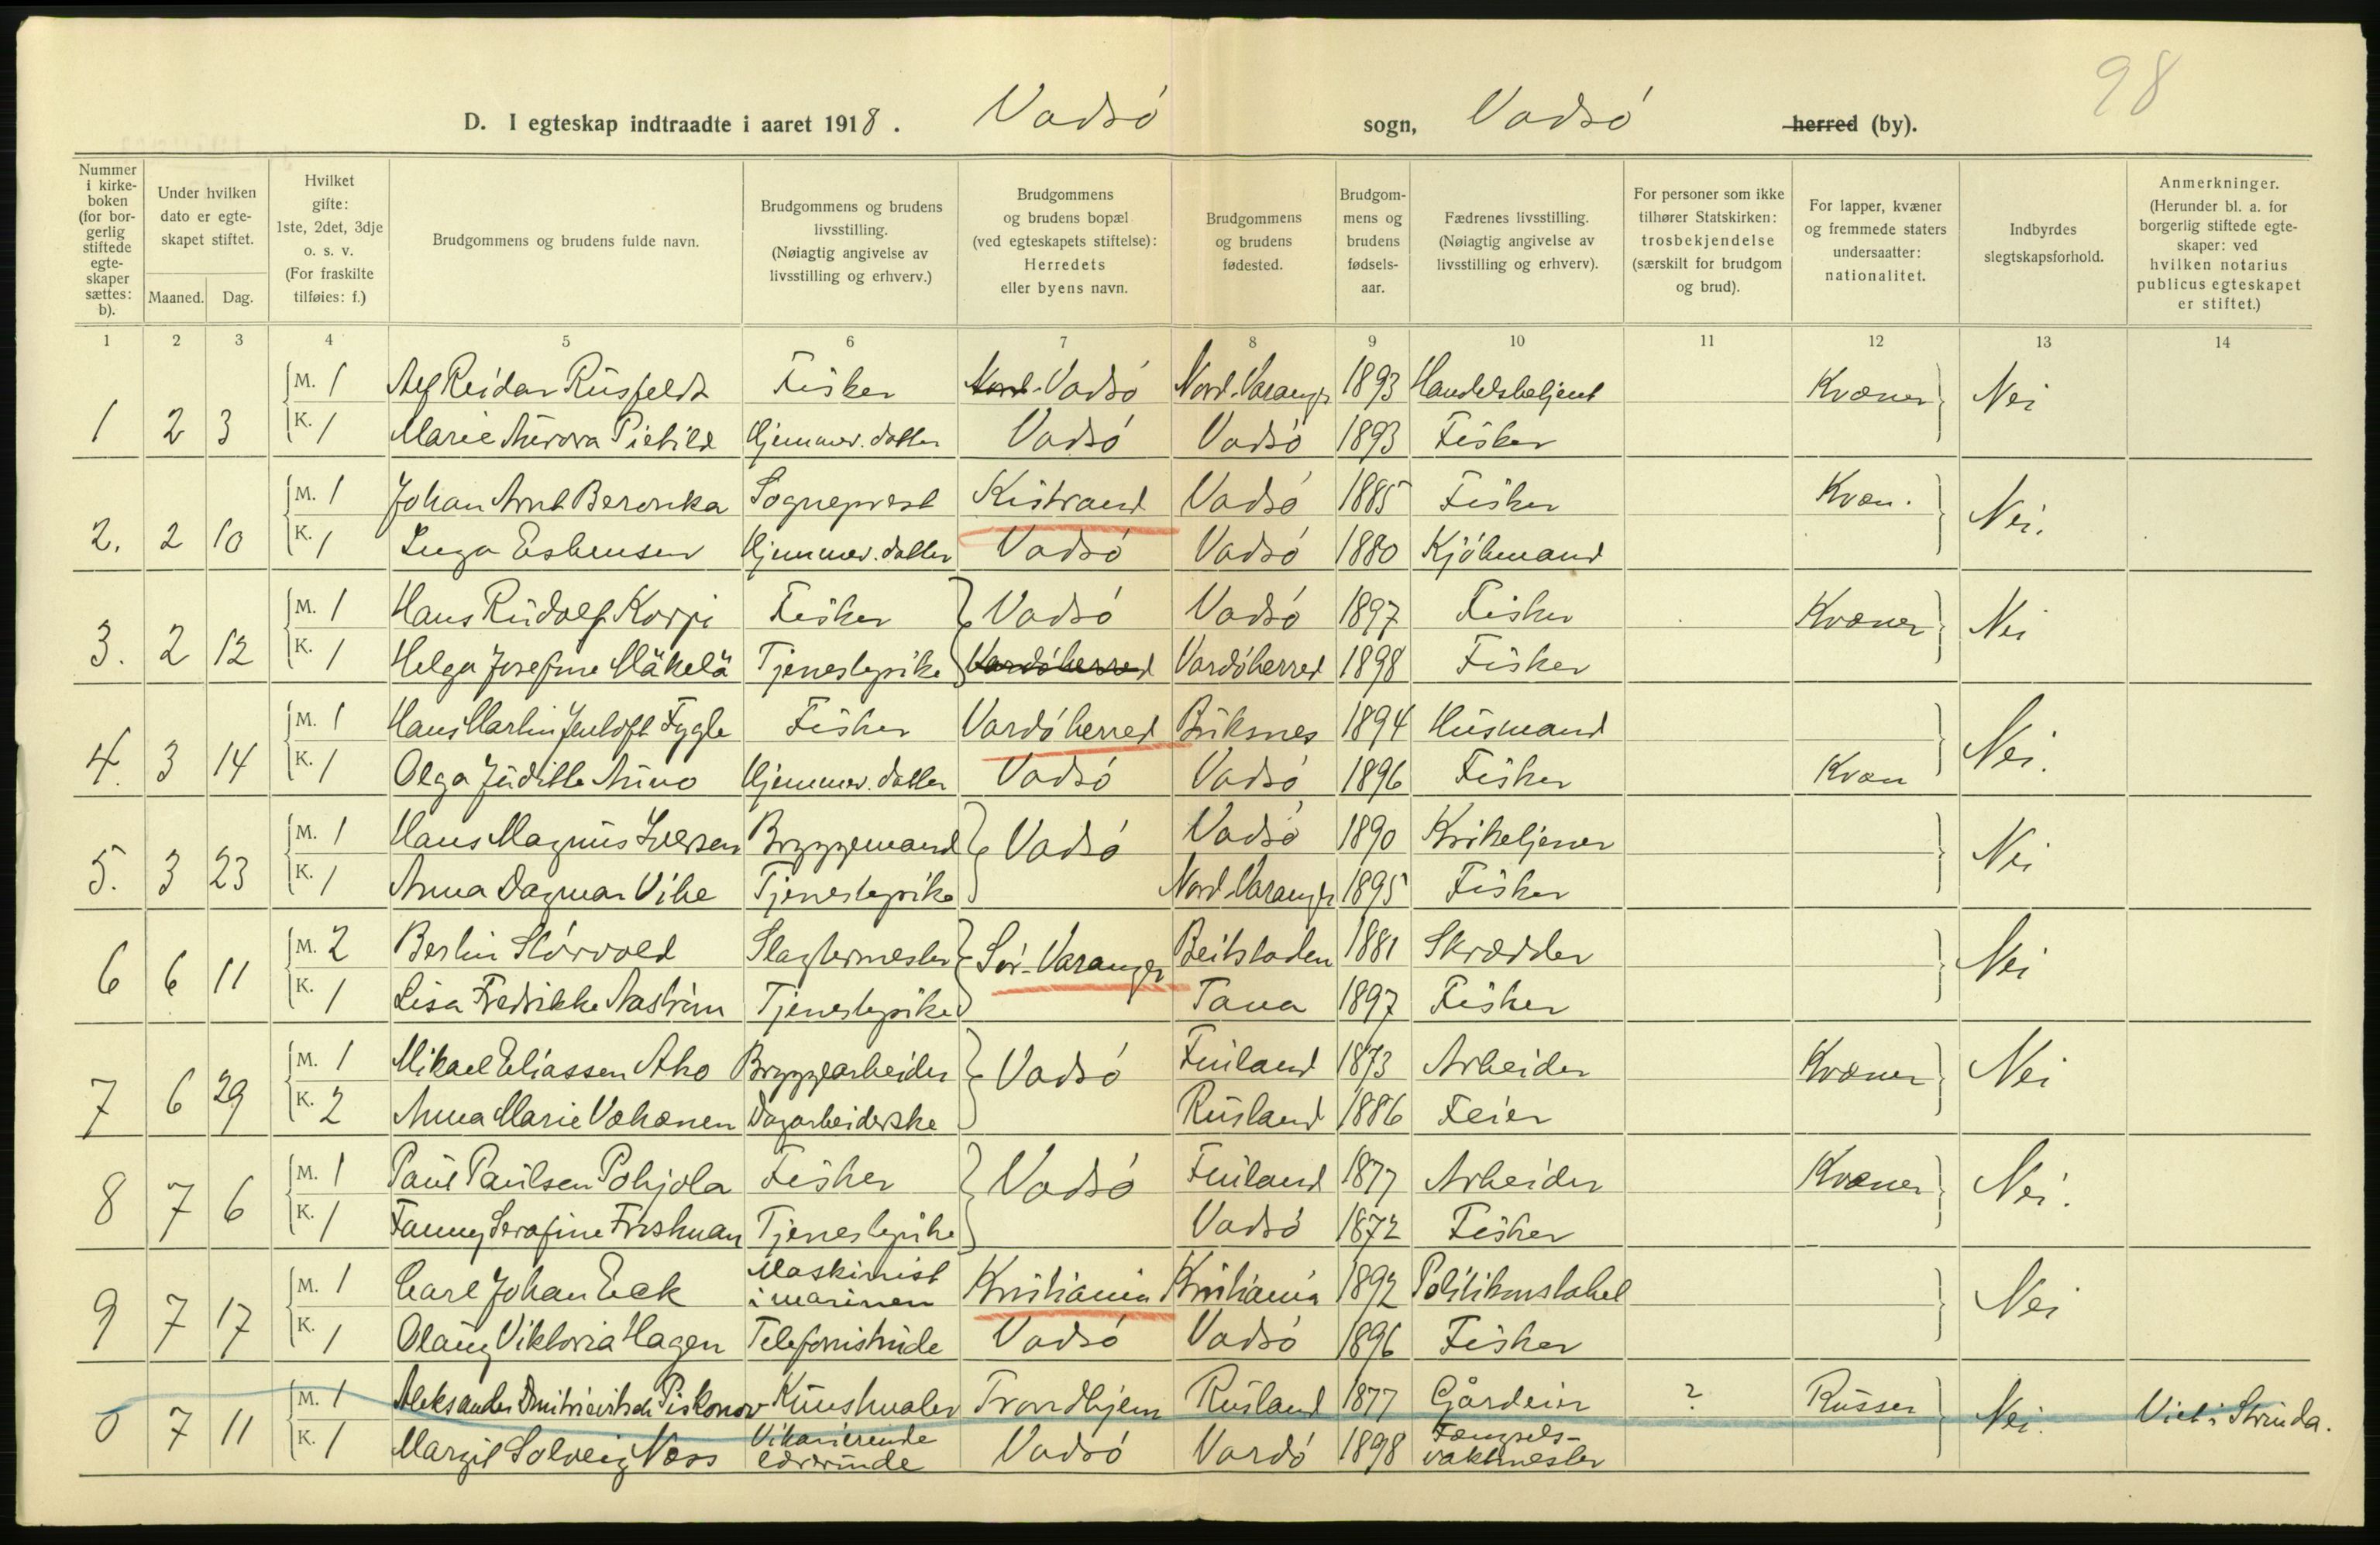 98
D. I egteskap indtraadte i aaret 1918. Vadsö sogn, Vadsö herred (by).
Nummer i kirkeboken (for borgerlig stiftede egteskaper sættes: b).
Under hvilken dato er egteskapet stiftet.
Maaned. Dag.
Hvilket gifte: 1ste, 2det, 3dje o. s. v. (For fraskilte tilføies: f.)
Brudgommens og brudens fulde navn.
Brudgommens og brudens livsstilling. (Nøiagtig angivelse av livsstilling og erhverv.)
Brudgommens og brudens bopæl (ved egteskapets stiftelse): Herredets eller byens navn.
Brudgommens og brudens fødested.
Brudgommens og brudens fødselsaar.
Fædrenes livsstilling. (Nøiagtig angivelse av livsstilling og erhverv).
For personer som ikke tilhører Statskirken: trosbekjendelse (særskilt for brudgom og brud).
For lapper, kvæner og fremmede staters undersaatter: nationalitet.
Indbyrdes slegtskapsforhold.
Anmerkninger. (Herunder bl. a. for borgerlig stiftede egteskaper: ved hvilken notarius publicus egteskapet er stiftet.)
1 2 3 4 5 6 7 8 9 10 11 12 13 14
M. 1 Alf Reidar Rusfeldt Fisker Nord-Vadsö Nord-Varanger 1893 Handelsbetjent Kvæner Nei
1 2 3 K. 1 Marie Aurora Pietilæ Hjemmev. datter Vadsö Vadsö 1893 Fisker
M. 1 Johan Arnt Beronka Sogneprest Kistrand Vadsö 1885 Fisker Kvæn. Nei.
2. 2 10 K. 1 Inga Esbensen Hjemmev. datter Vadsö Vadsö 1880 Kjöbmand
M. 1 Hans Rudolf Korpi Fisker Vadsö Vadsö 1897 Fisker Kvæner Nei
3. 2 12 K. 1 Helga Josefine Mäkelä Tjenestepike Vardöherred Vardöherred 1898 Fisker
M. 1 Hans Martin Jentoft Fygle Fisker Vardöherred Buksnes 1894 Husmand Nei.
4. 3 14 K. 1 Olga Juditte Auno Hjemmev. datter Vadsö Vadsö 1896 Fisker Kvæn
M. 1 Hans Magnus Iversen Bryggemand Vadsö Vadsö 1890 Kirketjener Nei
5. 3 23 K. 1 Anna Dagmar Vibe Tjenestepike Nord-Varanger 1895 Fisker
M. 2 Bertin Störvold Slagtermester Sör-Varanger Beitstaden 1881 Skrædder Nei
6 6 11 K. 1 Lisa Fredrikke Aaström Tjenestepike Tana 1897 Fisker
M. 1 Mikael Eliassen Aho Bryggearbeider Vadsö Finland 1873 Arbeider Kvæner Nei
7 6 29 K. 2 Anna Marie Vækænen Dagarbeiderske Rusland 1886 Feier
M. 1 Paul Paulsen Pohjola Fisker Vadsö Finland 1877 Arbeider Kvæner Nei.
8 7 6 K. 1 Fanny Serafine Friskman Tjenestepike Vadsö 1872 Fisker
M. 1 Carl Johan Eek Maskinist i marinen Kristiania Kristiania 1892 Politikonstabel Nei
9 7 17 K. 1 Olaug Viktoria Hagen Telefonistinde Vadsö Vadsö 1896 Fisker
M. 1 Aleksander Dmitrievitsch Piskonov Kunstmaler Trondhjem Rusland 1877 Gårdeier ? Russer Nei. Viet i Strinda.
0 7 11 K. 1 Margit Solveig Næss Vikarierende lærerinde Vadsö Vardö 1898 Fængselsvaktmester